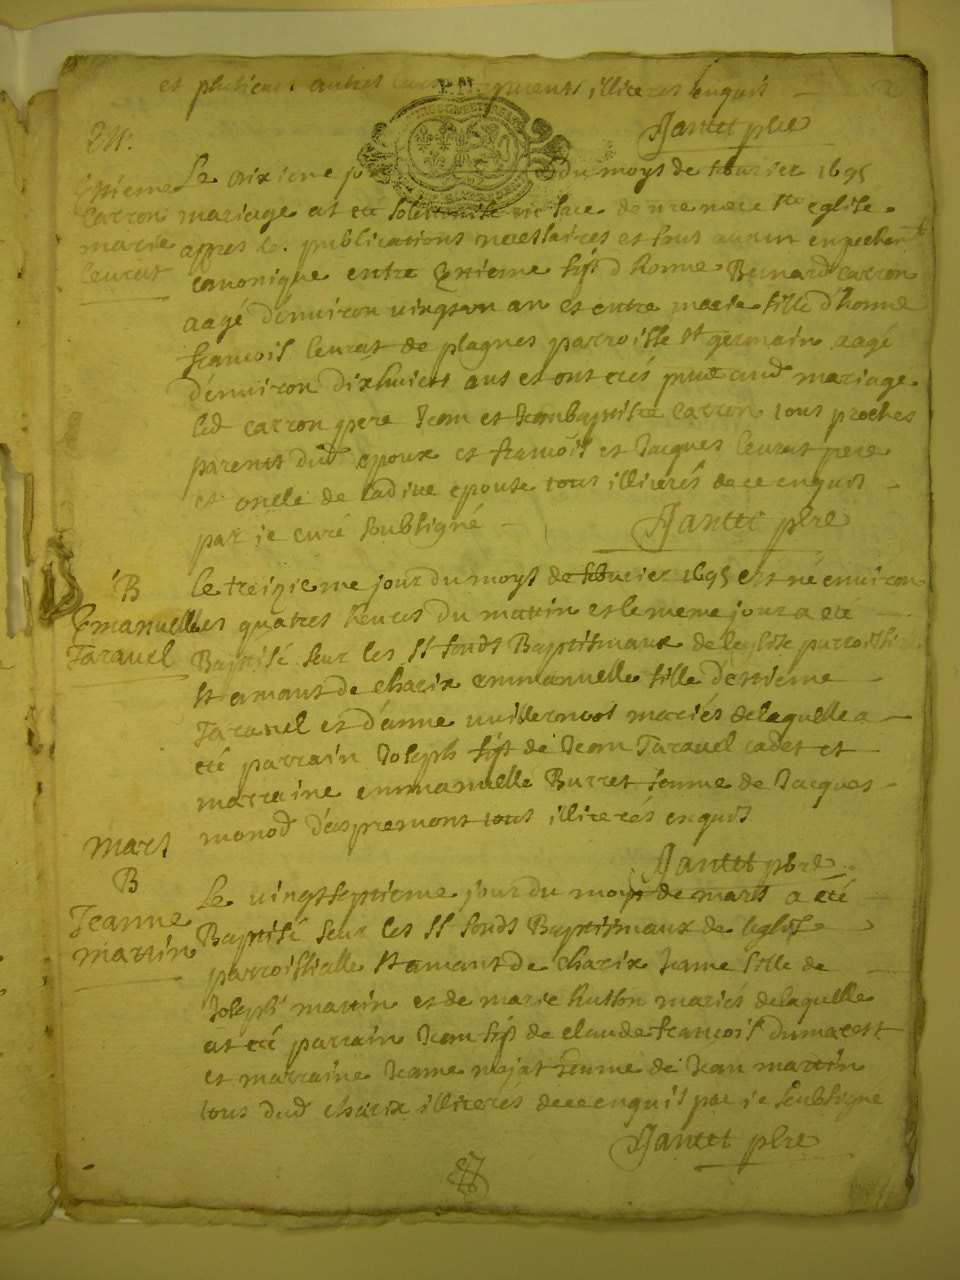 et plusieurs autres illiteres enquis
Jantet pbre
M:
Estienne
Carron
marie
leurat
Le dixieme du moys de febvrier 1695
mariage at eté solemnisé en face de nre mere ste eglise
appres les publications necessaires et sans aucun enpechemt
canonique entre Estienne fils d'honne Bernard carron
aagé d'environ vingt un an et entre marie fille d'honne
francois leurat de plagnes parroisse st germain aagé
d'environ dixhuict ans et ont etés pnt aud mariage
led carron pere Jean et Jeanbaptiste carron tous proches
parents dud epoux et francois et Jacques leurat pere
et oncle de ladite epouse tous illiterés de ce enquis
par je curé soubsigné
Jantet pbre
B
Emanuelle
Taravel
le treizieme jour du moys de febvrier 1695 est né environ
les quatres heures du mattin et le meme jour a eté
Baptisé sur les sts fonds Baptismaux de leglise
st amant de charix emmanuelle fille d'estienne
Taravel et d'anne vuillermoz mariés de laquelle a
eté parrain Joseph fils de Jean Taravel cadet et
marraine emmanuelle Burret femme de Jacques
monod d'aspremont tous illiterés enquis
Jantet pbre
mars
B
Jeanne
mattin
Le vingtseptieme jour du moys de mars a eté
Baptisé sur les sts fonds Baptismaux de leglise
parroissialle st amant de charix Jeanne fille de
Joseph mattin et de marie husson mariés de laquelle
at eté parrain Jean fils de claude francois dumarest
et marraine Jeanne mojat femme de Jean mattin
tous dud charix illiterés de ce enquis par je soubsigné
Jantet pbre